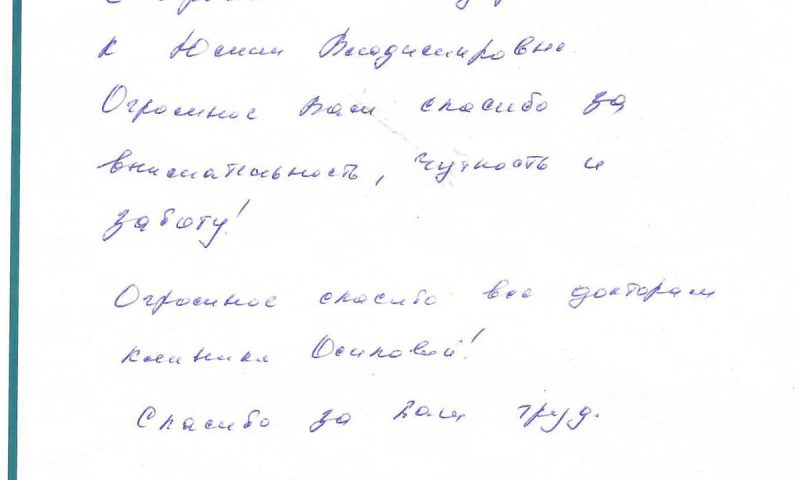 к Юлии Владимировне.
Огромное Вам спасибо за
внимательность, чуткость и
заботу!
Огромное спасибо все докторам
клиники Осиповой!
Спасибо за Ваш труд.